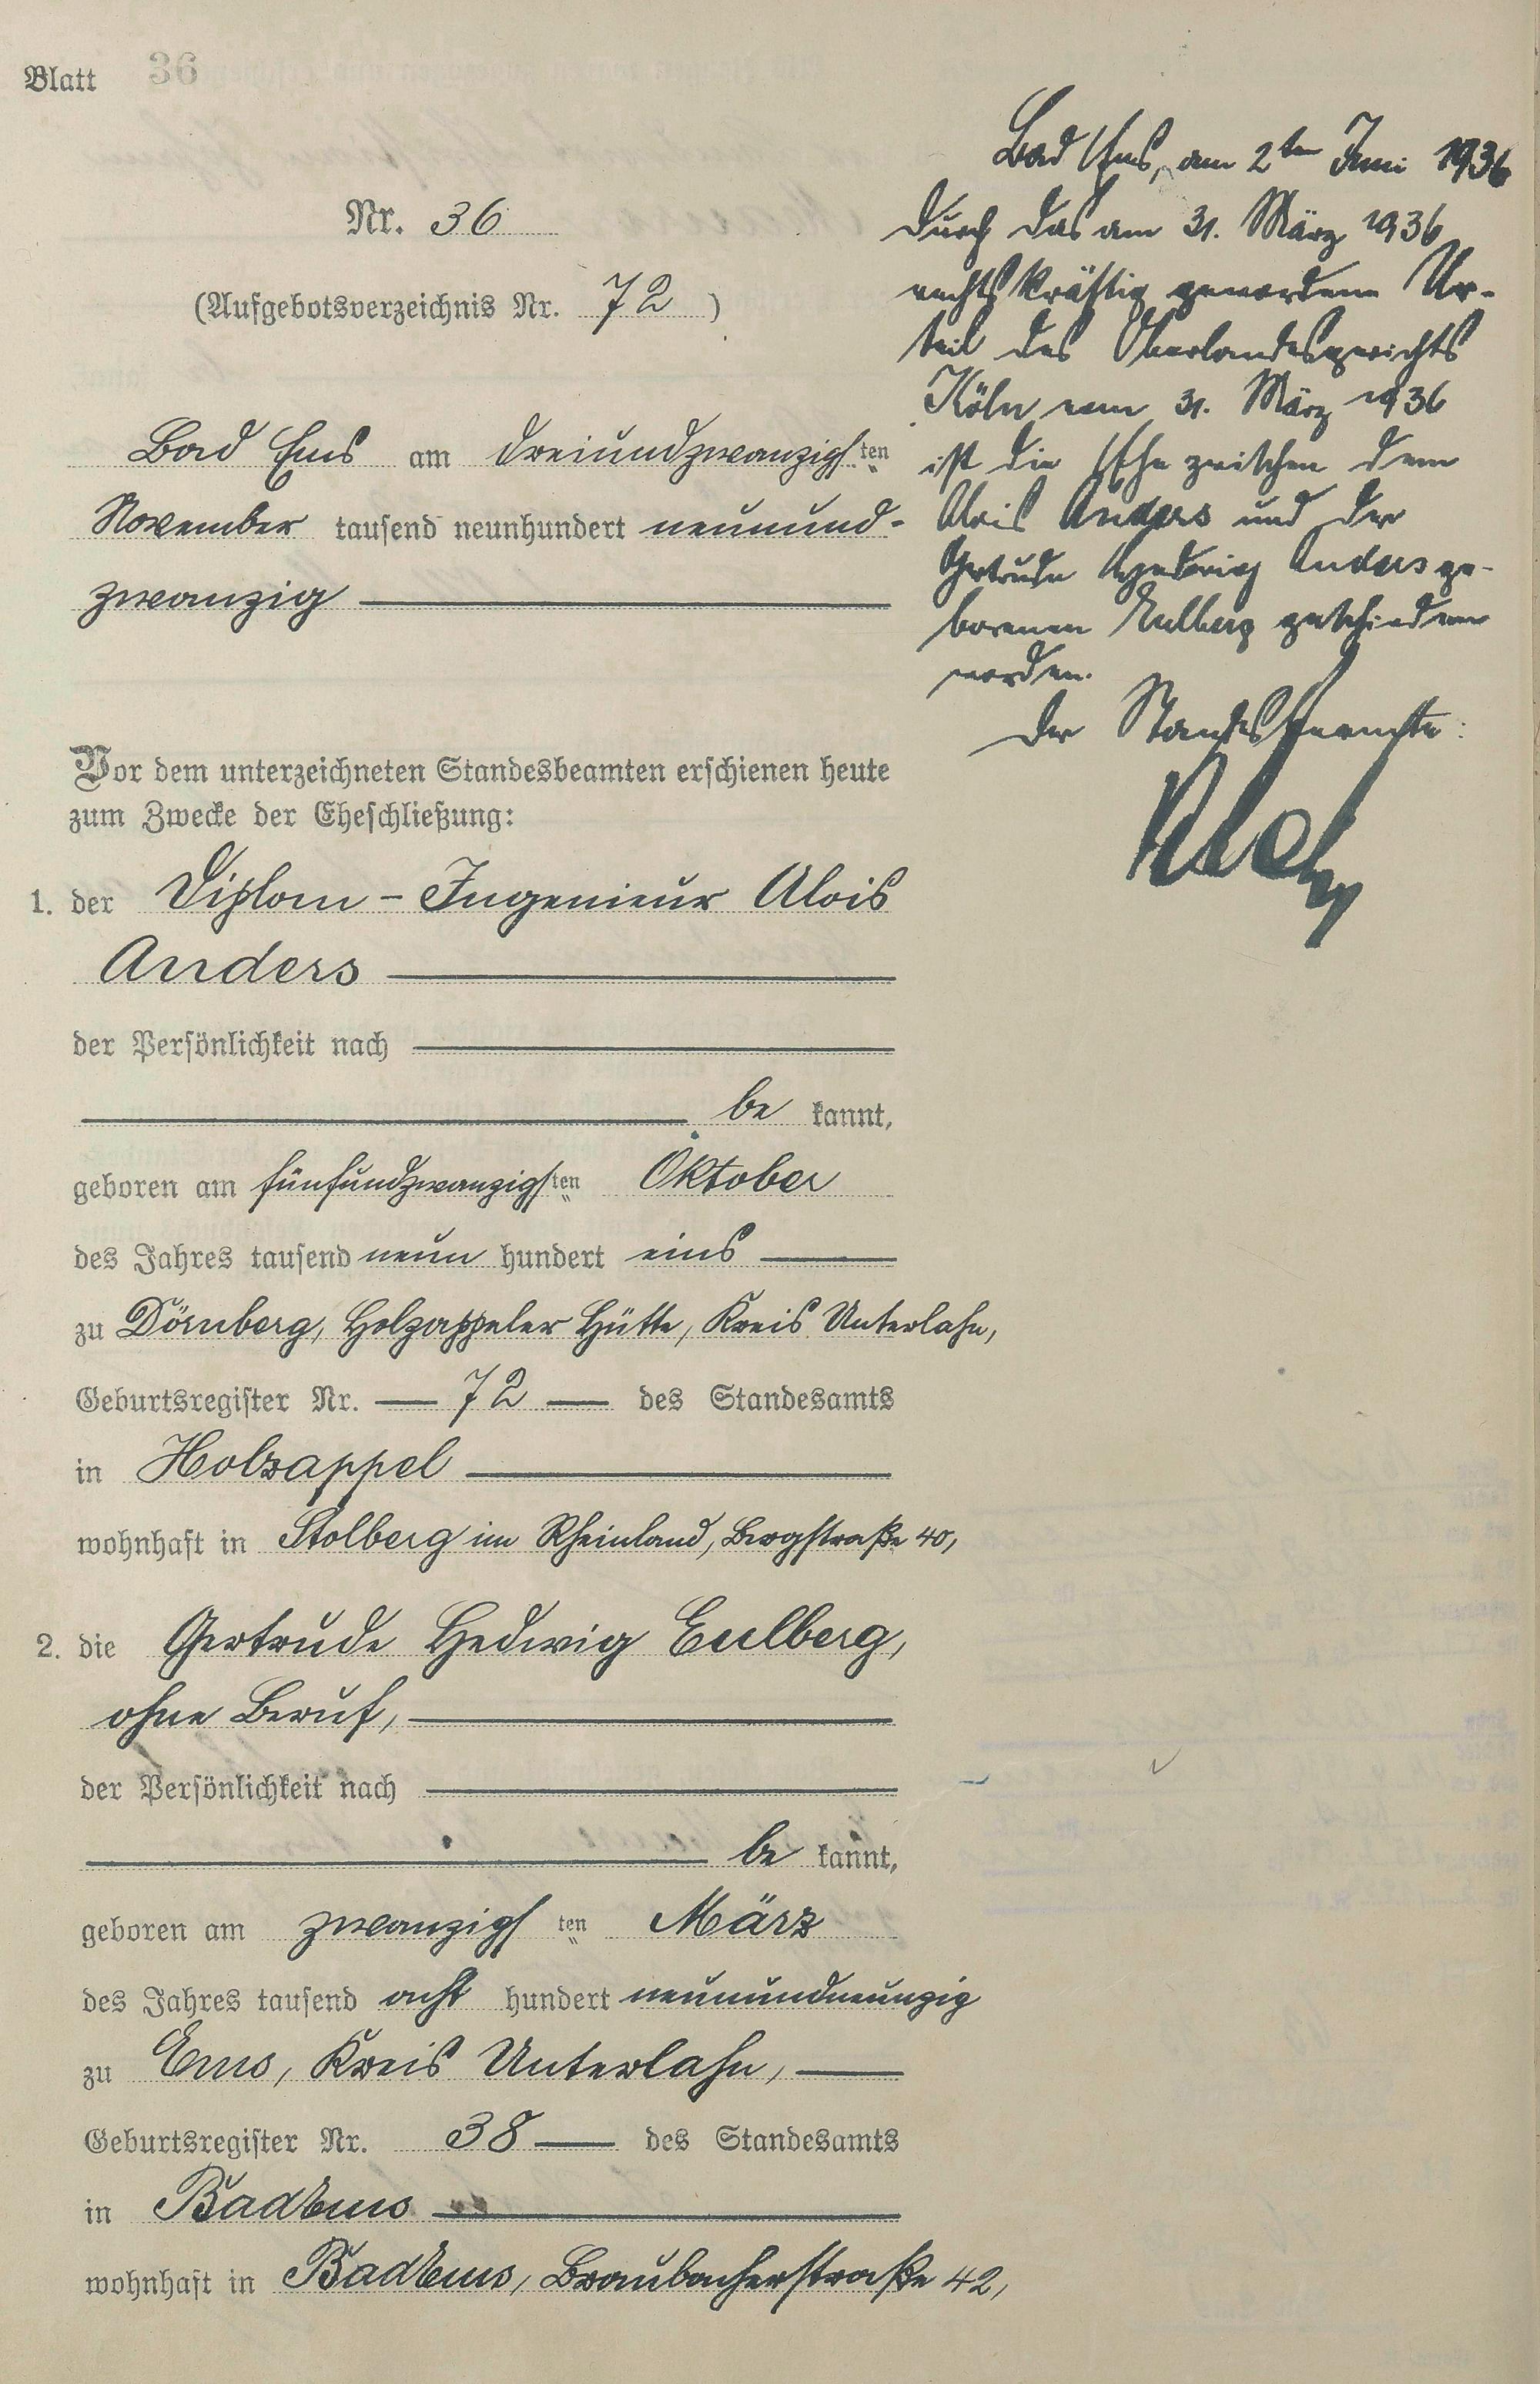 Blatt 36
Nr. 36
(Aufgebotsverzeichnis Nr. 72)
Bad Ems am dreiundzwanzigsten
November tausend neunhundert neunund-
zwanzig
Vor dem unterzeichneten Standesbeamten erschienen heute
zum Zwecke der Eheschließung:
1. der Diplom-Ingenieur Alois
Anders
der Persönlichkeit nach
be kannt,
geboren am fünfundzwanzigsten Oktober
des Jahres tausend neun hundert eins
zu Dörnberg, Holzappeler Hütte, Kreis Unterlahn,
Geburtsregister Nr. 72 des Standesamts
in Holzappel
wohnhaft in Stolberg im Rheinland, Bergstraße 40,
2. die Gertrude Hedwig Eulberg,
ohne Beruf,
der Persönlichkeit nach
be kannt,
geboren am zwanzigsten März
des Jahres tausend acht hundert neunundneunzig
zu Ems, Kreis Unterlahn,
Geburtsregister Nr. 38 des Standesamts
in Bad Ems
wohnhaft in Bad Ems, Braubacherstraße 42,
Bad Ems, am 2ten Juni 1936
Durch das am 31. März 1936
rechtskräftig gewordene Ur-
teil des Oberlandesgerichts
Köln vom 31. März 1936
ist die Ehe zwischen dem
Alois Anders und der
Gertrude Hedwig Anders ge-
borenen Eulberg geschieden
worden.
Der Standesbeamte: